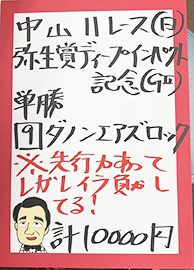 中山11レース(日)
弥生賞ディープインパクト
記念(GⅡ)
単勝
9 ダノンエアズロック
※先行力あって
しかもレイラ負かし
てる!
計10000円